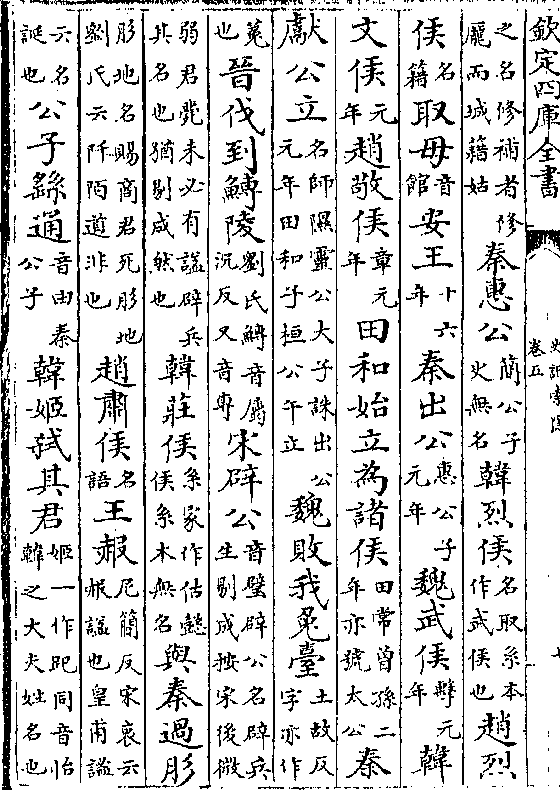 欽定四庫全書 史記索隱 卷五
之名修補者修龎而城籍姑秦惠公簡公子史無名韓烈侯名取系本作武侯也趙烈
侯名籍取毋音館安王十六年秦出公惠公子元年魏武侯擊元年韓
文侯元年趙敬侯章元年田和始立為諸侯田常曾孫二年亦號太公秦
獻公立名師隰靈公大子誅出公元年田和子桓公午立魏敗我兎臺土故反字亦作
菟也晉伐到鱄陵劉氏鱄音屬沇反又音專宋辟公音璧辟公名辟兵生剔成按宋後微
弱君薨未必有諡辟兵其名也猶剔成然也韓莊侯系家作估懿侯系本無名與秦過肜
肜地名賜商君死肜地劉氏云阡陌道非也趙肅侯名語王赧尼簡反宋衷云赧諡也皇甫謐
云名誕也公子繇通音由秦公子韓姬弒其君姬一作同音怡韓之大夫姓名也